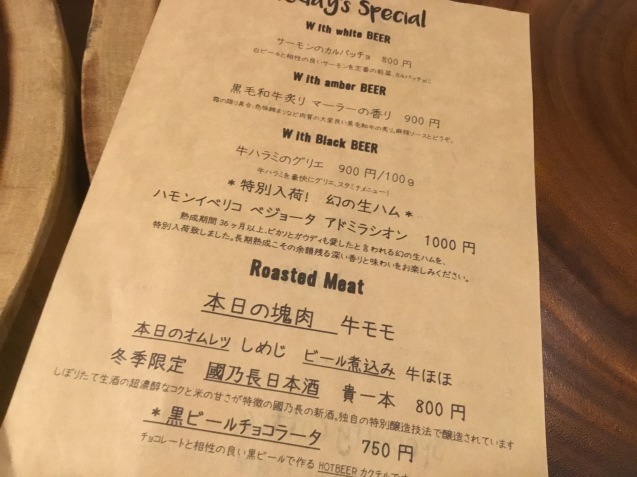 Today's Special
With white BEER
サーモンのカルパッチョ 800円
白ビールと相性の良いサーモンを定番の前菜、カルパッチョに
With amber BEER
黒毛和牛炙り マーラーの香り 900円
霜の降り具合、色味締まりなど肉質の大変良い黒毛和牛の炙り。麻辣ソースとどうぞ。
With Black BEER
牛ハラミのグリエ 900円/100g
牛ハラミを豪快にグリエ、スタミナメニュー!
*特別入荷! 幻の生ハム*
ハモンイベリコ ベジョータ アドミラシオン 1000円
熟成期間36ヶ月以上、ピカソとガウディも愛したと言われる幻の生ハムを、
特別入荷致しました。長期熟成こその余韻残る深い香りと味わいをお楽しみください。
Roasted Meat
本日の塊肉 牛モモ
本日のオムレツ しめじ ビール煮込み 牛ほほ
冬季限定 國乃長日本酒 貴一本 800円
しぼりたて生酒の超濃醇なコクと米の甘さが特徴の國乃長の新酒。独自の特別醸造技法で醸造されています
*黒ビールチョコラータ 750円
チョコレートと相性の良い黒ビールで作る HOTBEER カクテルです